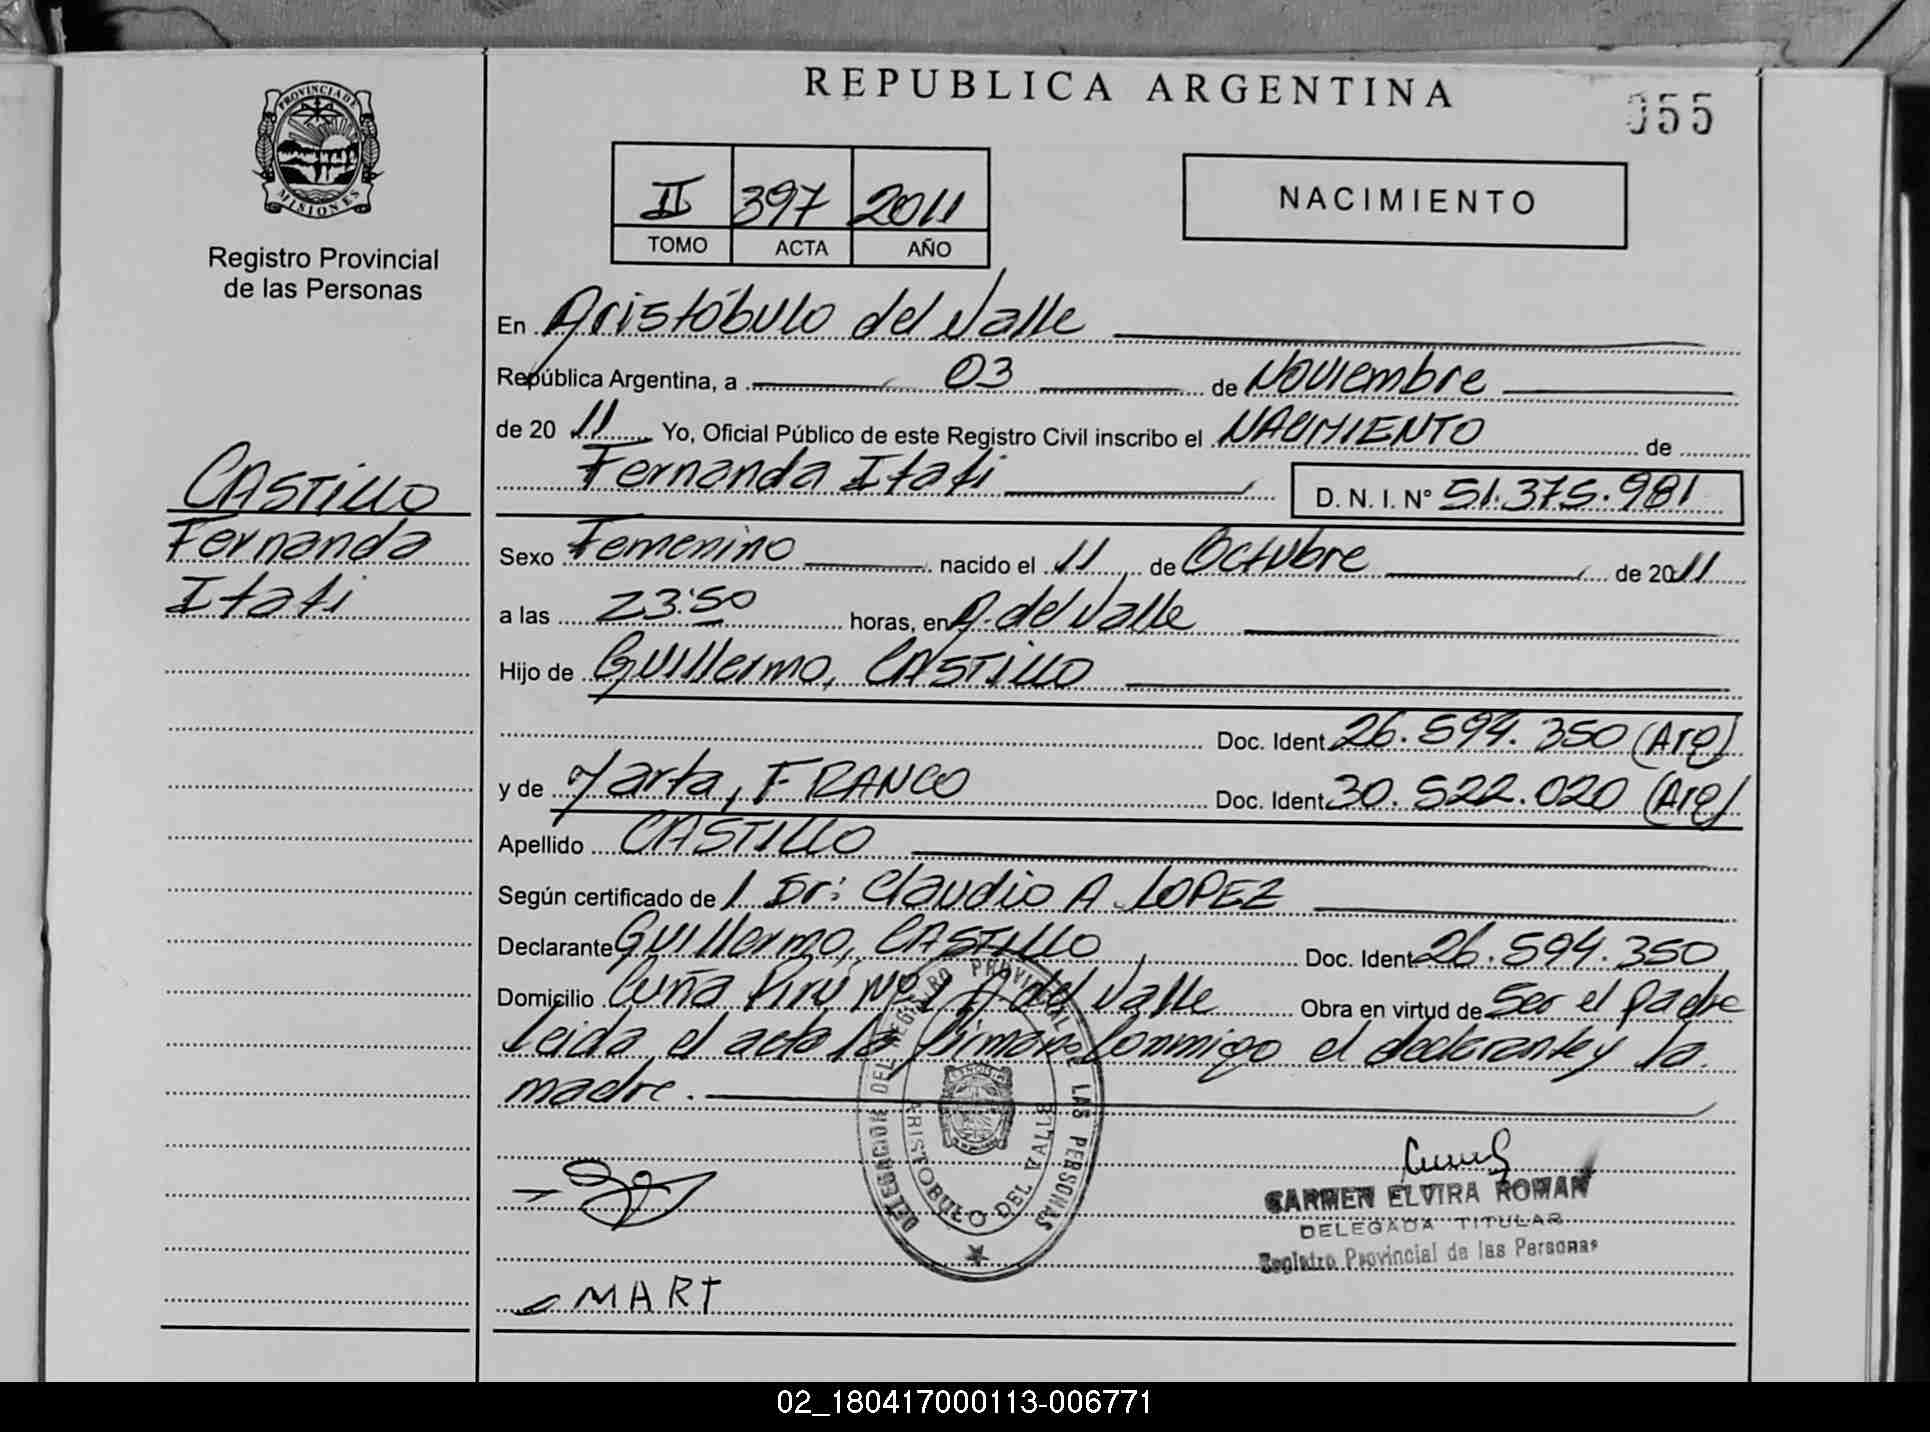 REPUBLICA ARGENTINA
055
PROVINCIA DE
MISIONES
Registro Provincial
de las Personas
II 397 2011
TOMO ACTA AÑO
NACIMIENTO
En Aristóbulo del Valle
República Argentina, a 03 de Noviembre
de 2011 Yo, Oficial Público de este Registro Civil inscribo el NACIMIENTO de
Fernanda Itati D. N. I. Nº 51.375.981
CASTILLO
Fernanda
Itati
Sexo Femenino nacido el 11 de Octubre de 2011
a las 23:50 horas, en A. del Valle
Hijo de Guillermo, CASTILLO
Doc. Ident. 26.594.350 (Arg)
y de Marta, FRANCO Doc. Ident. 30.522.020 (Arg)
Apellido CASTILLO
Según certificado de l Dr: Claudio A. LOPEZ
Declarante Guillermo, CASTILLO Doc. Ident. 26.594.350
Domicilio Cuña Pirú Nº 1 A del Valle Obra en virtud de Ser el padre
Leida el acta la firman Conmigo el declarante y la
madre.
DELEGACION DEL REGISTRO PROVINCIAL DE LAS PERSONAS
ARISTOBULO DEL VALLE
CARMEN ELVIRA ROMAN
DELEGADA TITULAR
Registro Provincial de las Personas
MART
02_180417000113-006771